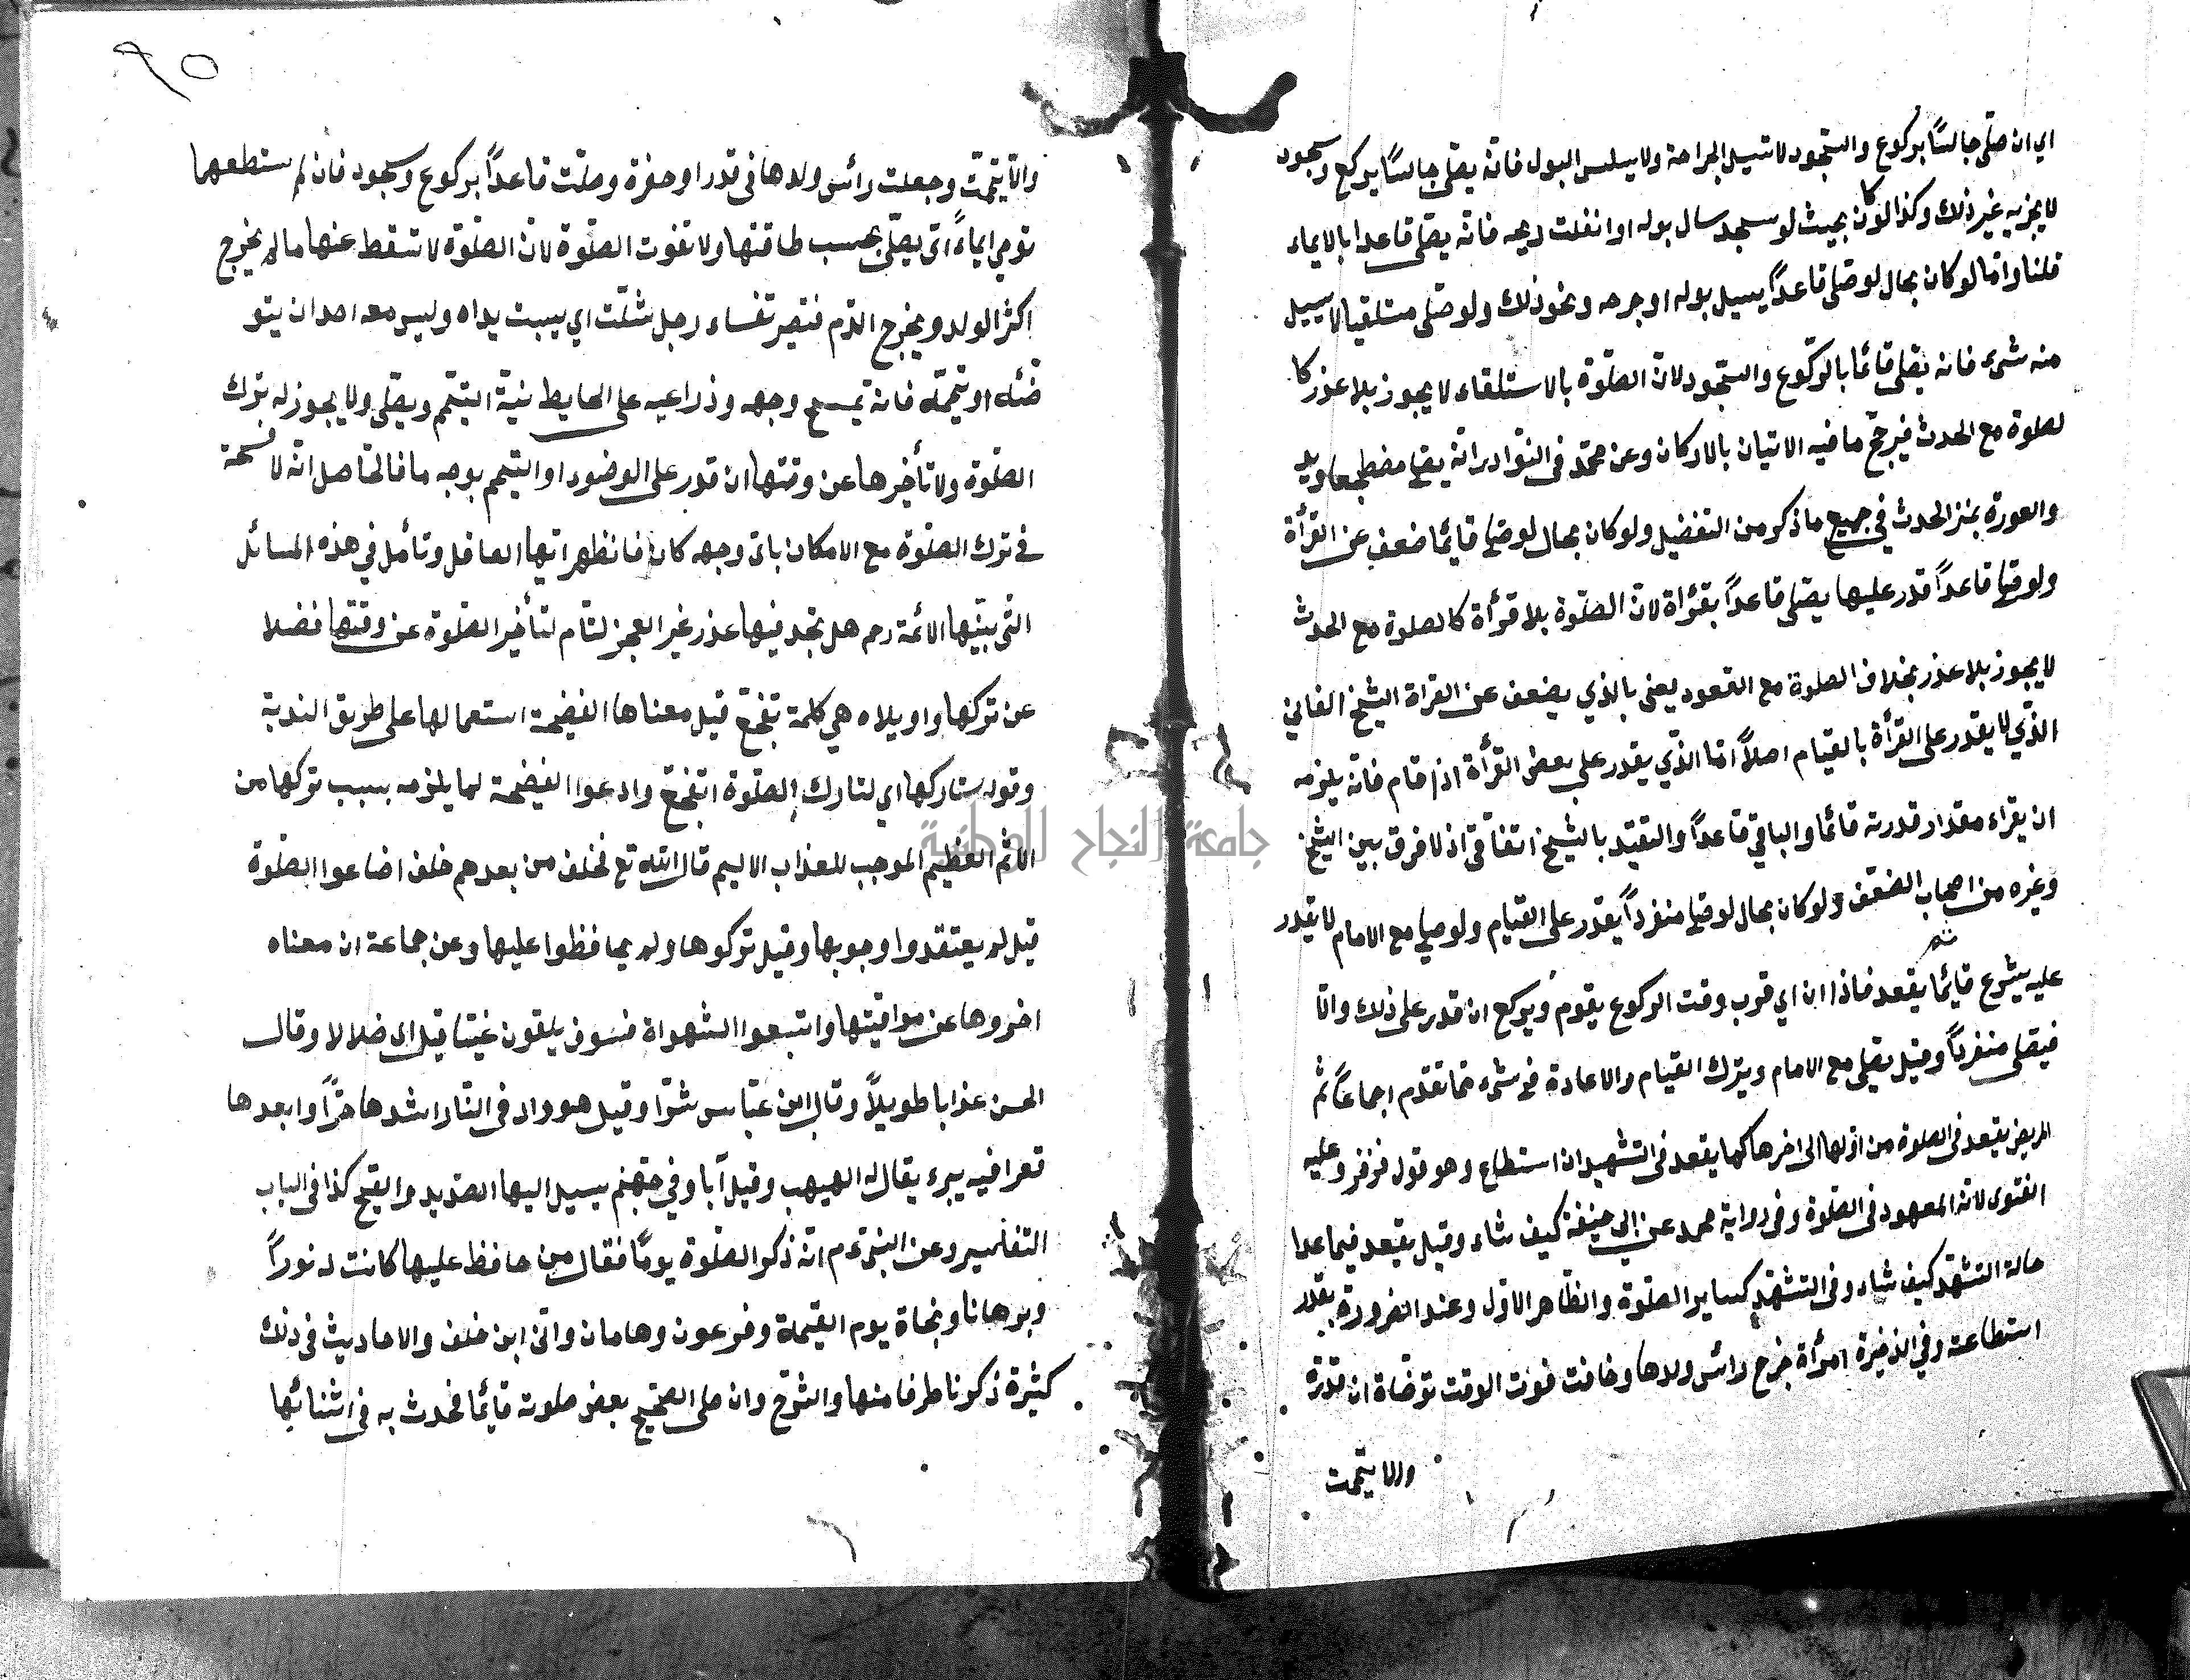 اي ان صلّى جالسًا بركوع والسّجود لا تسيل الجراحة ولا يسلس البول فانّه يصلّى جالسًا يركع وسجود
لا يجزيه غير ذلك وكذا لو كان بحيث لو سجد سال بوله او انفلت ريحه فانّه يصلّى قاعدا بالايماء
قلنا وامّا لو كان بحال لو صلّى قاعدًا يسيل بوله او جرحه ونحو ذلك ولو صلّى مستلقيا لا يسيل
منه شىء فانه يصلّى قائما بالرّكوع والسّجود لانّ الصّلوة بالاستلقاء لا يجوز بلا عذر كا
لصلوة مع الحدث فيرجّح ما فيه الاتيان بالاركان وعن محمّد فى النّوادر انّه يصلى مضطجعا
والعورة بمنز الحدث في جميع ما ذكر من التفضيل ولو كان بحال لو صلّى قايمًا ضعف عن القرأة
ولو صلّى قاعدًا قدر عليها يصلّى قاعدًا بقرأة لانّ الصّلوة بلا قرأة كالصلوة مع الحدث
لا يجوز بلا عذر بخلاف الصلوة مع القعود يعنى بالذي يضعف عن القراة الشّيخ الفاني
الذّي لا يقدر على القرأة بالقيام اصلاً امّا الذّي يقدر على بعض القرأة اذا قام فانّه يلزمه
ان يقراء مقدار قدرته قائما والباقي قاعدًا والتقيّد بالشّيخ اتفاقى اذ لا فرق بين الشّيخ
وغيره من اصحاب الضّعف ولو كان بحال لو صلّى منفردًا يقدر على القيام ولو صلى مع الامام لا يقدر
عليه يشرع قايمًا ثم يقعد فاذا ان اي قرب وقت الركوع يقوم ويركع ان قدر على ذلك والّا
فيصلى منفردًا وقيل يصلى مع الامام ويترك القيام والاعادة فى شىء ممّا تقدم اجماعًا ثم
المريض يقعد فى الصلوة من اوّلها الى اخرها كما يقعد فى التشهد ان استطاع وهو قول زفر وعليه
الفتوى لانه المعهود فى الصّلوة وفى رواية محمد عن ابى حنيفة كيف شاء وقيل يقعد فيما عدا
حالة التشهّد كيف شاء وفى التشهّد كساير الصلوة والظّاهر الاوّل وعند الضرورة بقدر
استطاعته وفي الذخيرة امرأة خرج رائس ولدها وخافت فوت الوقت توضّاة ان قدرة
والا يتمّمت
٩٥
والّا يتمّمت وجعلت رائس ولدها فى قدر او حفرة وصلّت قاعدًا بركوع وسجود فان لم تستطعهما
تومي ايماءً اى يصلّى بحسب طاقتها ولا تفوت الصّلوة لانّ الصّلوة لا تسقط عنها ما لم يخرج
اكثر الولد ويخرج الدّم فتصير نفساء رجل شلّت اي يبست يداه وليس معه احد ان يتو
ضّئه او يتمّمه فانه يمسح وجهه وذراعيه على الحايط بنيّة التيمّم ويصلّى ولا يجوز له ترك
الصّلوة ولا تأخيرها عن وقتها ان قدر على الوضوء او التيمم بوجه ما فالحاصل انّه لا فسحة
في ترك الصلوة مع الامكان باىّ وجهه كان فانظر ايّها العاقل وتأمل في هذه المسائل
التّى بيّنها الائمة رحم هل تجد فيها عذر غير العجز لتام لتأخير الصّلوة عن وقتها فضلا
عن تركها واويلاه هي كلمة تفجّع قيل معناها الفضيحة استعمالها على طريق الندبة
وقوله لتاركها اي لتارك الصّلوة اتفجّع وادعوا الفيضحة لما يلزمه بسبب تركها من
الاثم العظيم الموجب للعذاب الاليم قال اللّه تع فخلف من بعدهم خلف اضاعوا الصّلوة
قيل لم يعتقدوا وجوبها وقيل تركوها ولم يحافظوا عليها وعن جماعة ان معناه
اخروها عن مواقيتها واتبعوا الشهواة فسوف يلقون غيّا قيل اى ضلالا وقال
الحسن عذابا طويلاً وقال ابن عبّاس شرّا وقيل هو واد فى النّار اشدها حرًّا وابعدها
قعرا فيه بيرء يقال له الهيهب وقيل آباو في جهنم يسيل اليها الصّديد والقيح كذا فى الباب
التفاسير وعن النبى ءم انّه ذكر الصّلوة يومًا فقال من حافظ عليها كانت له نوراً
وبرهانا ونجاة يوم القيمة وفرعون وهامان وابىّ ابن خلف والاحاديث فى ذلك
كثيرة ذكرنا طرفا منها والشرح وان صلى الصّحيح بعض صلوته قايمًا فحدث به فى اثنائها
جامعة النجاح الوطنية